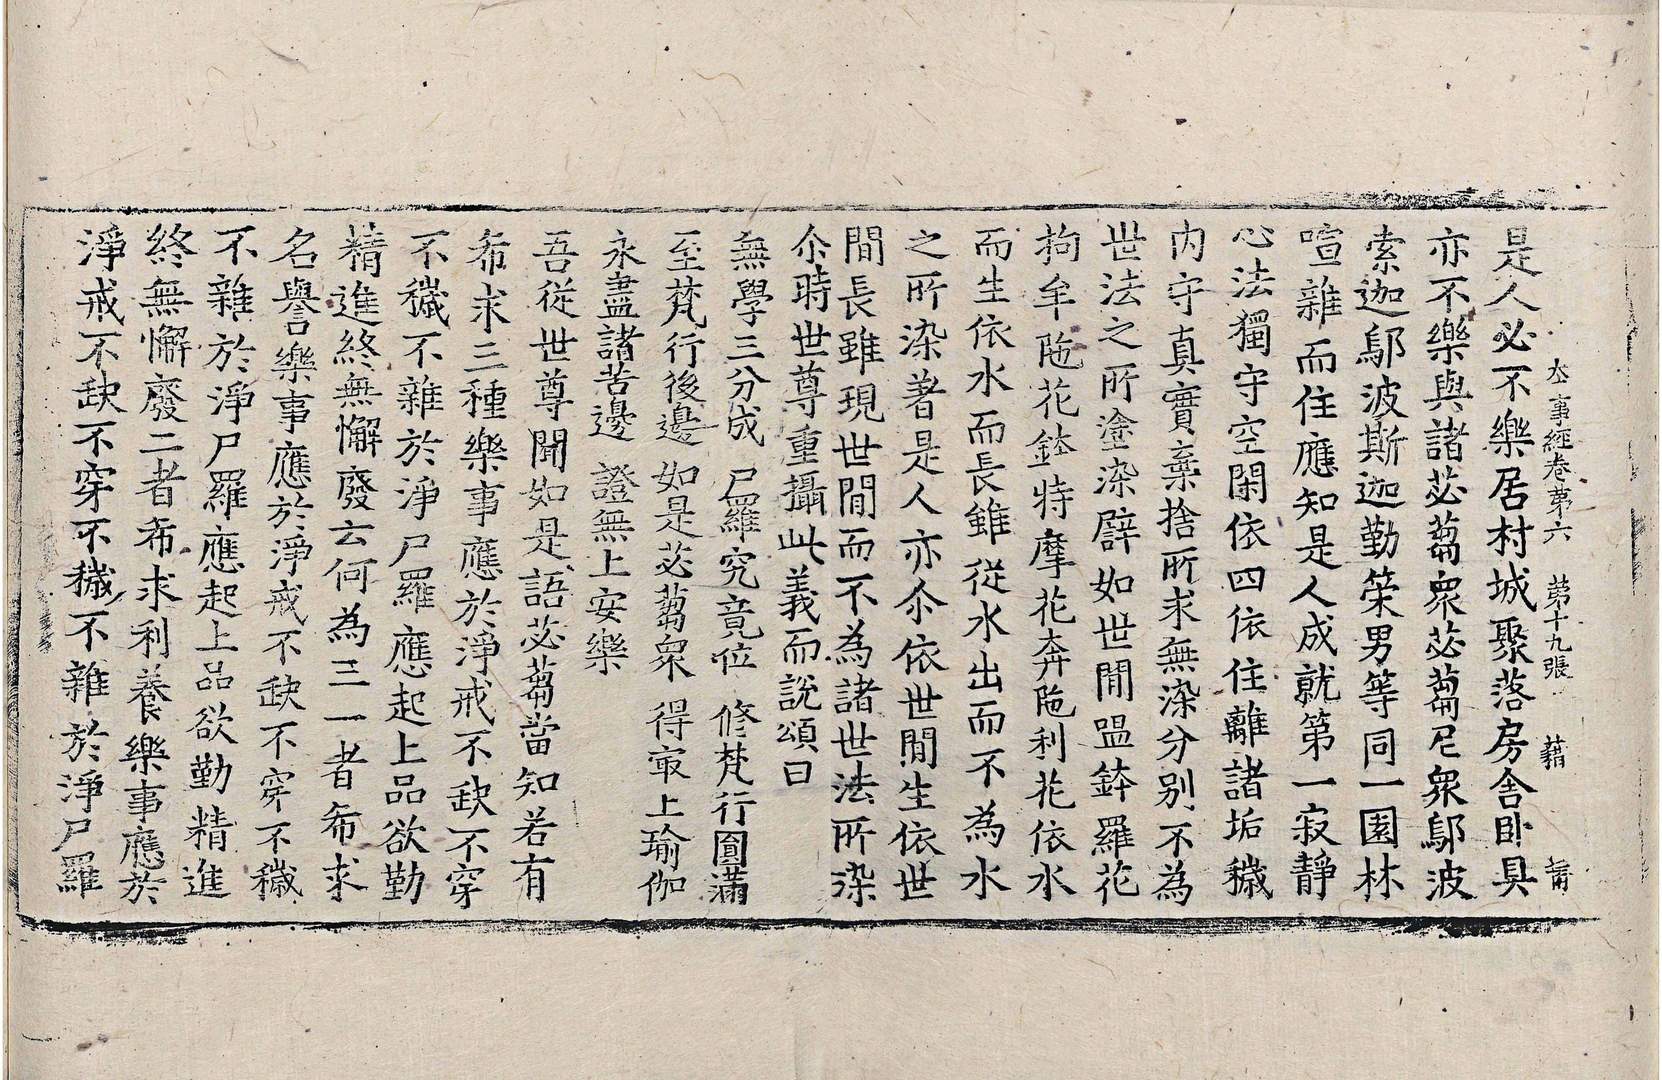 是人必不樂居村城聚落房舍卧具
本事經卷第六 第十九張 藉
亦不樂與諸苾蒭衆苾蒭尼衆鄔波
索迦鄔波斯迦勤策男等同一園林
喧雜而住應知是人成就第一寂靜
心法獨守空閑依四依住離諸垢穢
内守真實棄捨所求無染分別不為
世法之所塗染譬如世閒嗢鉢羅花
拘牟陁花鉢特摩花奔陁利花依水
而生依水而長雖從水出而不為水
之所染著是人亦尒依世閒生依世
閒長雖現世閒而不為諸世法所染
尒時世尊重攝此義而說頌曰
無學三分成 尸羅究竟位 修梵行圓滿
至梵行後邊 如是苾蒭衆 得㝡上瑜伽
永盡諸苦邊 證無上安樂
吾從世尊聞如是語苾蒭當知若有
希求三種樂事應於淨戒不缺不穿
不穢不雜於淨尸羅應起上品欲勤
精進終無懈廢云何為三一者希求
名譽樂事應於淨戒不缺不穿不穢
不雜於淨尸羅應起上品欲勤精進
終無懈廢二者希求利養樂事應於
淨戒不缺不穿不穢不雜於淨尸羅